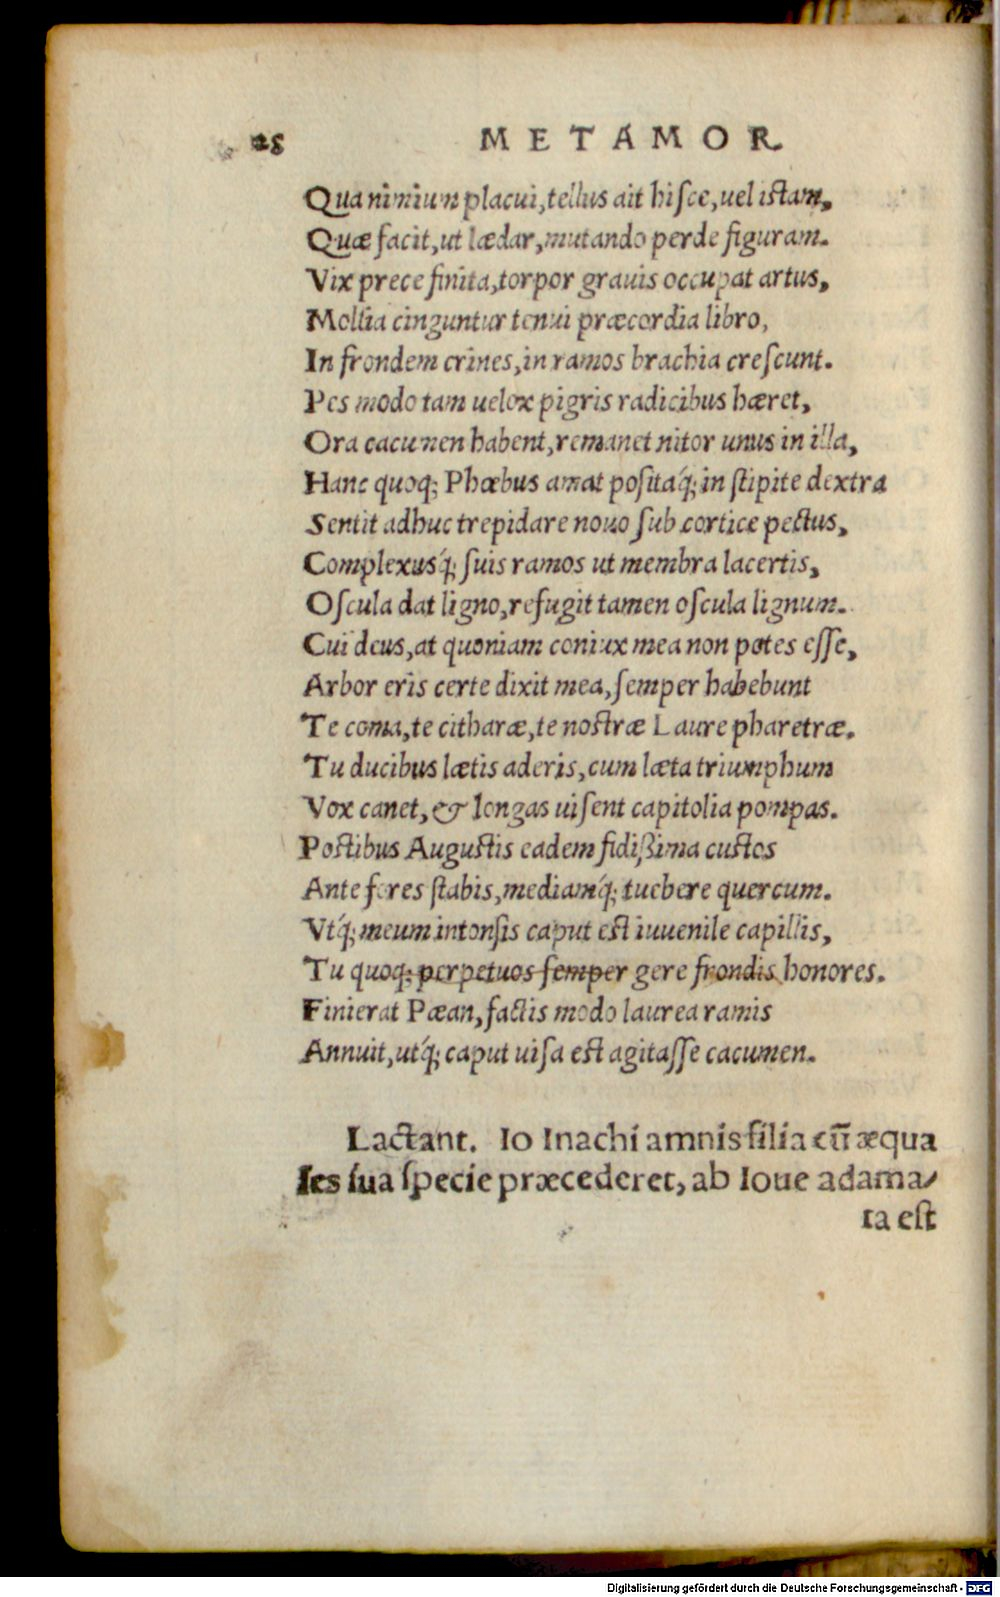 28 METAMOR.
Qua nimium placui, tellus ait hisce, uel istam,
Quæ facit, ut lædar, mutando perde figuram.
Vix prece finita, torpor grauis occupat artus,
Mollia cinguntur tenui præcordia libro,
In frondem crines, in ramos brachia crescunt.
Pes modo tam uelox pigris radicibus hæret,
Ora cacumen habent, remanet nitor unus in illa,
Hanc quoq; Phœbus amat positaq́; in stipite dextra
Sentit adhuc trepidare nouo sub cortice pectus,
Complexusq́; suis ramos ut membra lacertis,
Oscula dat ligno, refugit tamen oscula lignum.
Cui deus, at quoniam coniux mea non potes esse,
Arbor eris certe dixit mea, semper habebunt
Te coma, te citharæ, te nostræ Laure pharetræ.
Tu ducibus lætis aderis, cum læta triumphum
Vox canet, & longas uisent capitolia pompas.
Postibus Augustis eadem fidißima custos
Ante fores stabis, mediamq́; tuebere quercum.
Vtq́; meum intonsis caput est iuuenile capillis,
Tu quoq; perpetuos semper gere frondis honores.
Finierat Pæan, factis modo laurea ramis
Annuit, utq́; caput uisa est agitasse cacumen.
Lactant. Io Inachi amnis filia cū æqua
les sua specie præcederet, ab Ioue adama/
ta est
Digitalisierung gefördert durch die Deutsche Forschungsgemeinschaft - DFG